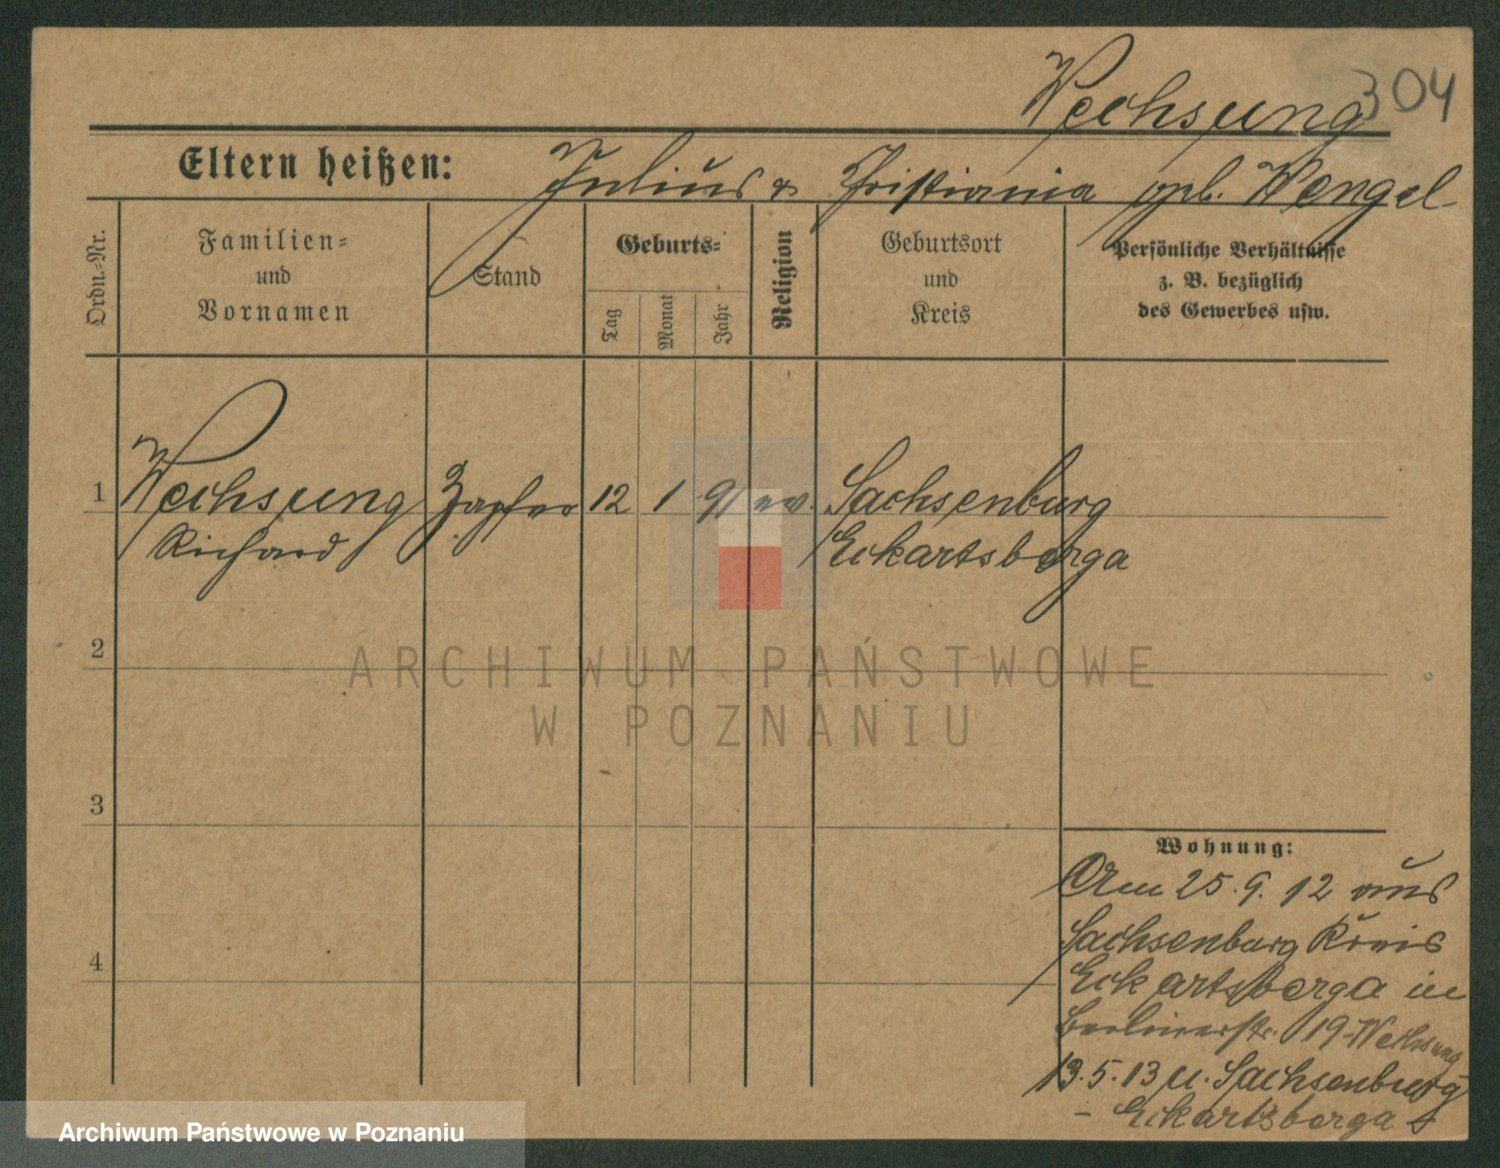 Wechsung 304
Eltern heißen: Julius & Christiania geb. Wengel
Ordn.=Nr.
Familien=
und
Vornamen
Stand
Geburts=
Tag
Monat
Jahr
Religion
Geburtsort
und
Kreis
Persönliche Verhältnisse
z. B. bezüglich
des Gewerbes usw.
1 Wechsung Zapfer 12 1 91 ev. Sachsenburg
Richard Eckartsberga
2
3
4
Wohnung:
Am 25.9.12 aus
Sachsenburg Kreis
Eckartsberga in
Berlinerstr. 19 - Wechsung
13.5.13 u. Sachsenburg
- Eckartsberga
ARCHIWUM PAŃSTWOWE
W POZNANIU
Archiwum Państwowe w Poznaniu